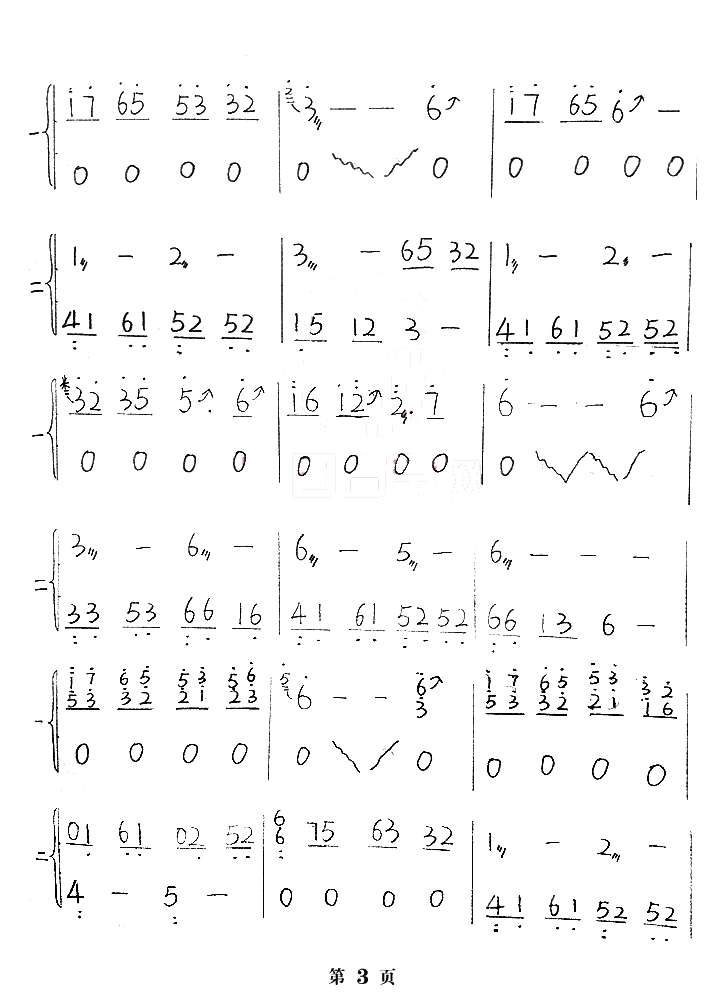 17 65 53 32 | 3 — — 6 | 17 65 6 —
一
0 0 0 0 | 0 0 | 0 0 0 0
1 — 2 — | 3 — 65 32 | 1 — 2 —
二
41 61 52 52 | 15 12 3 — | 41 61 52 52
32 35 5· 6 | 16 12 2· 7 | 6 — — 6
一
0 0 0 0 | 0 0 0 0 | 0
3 — 6 — | 6 — 5 — | 6 — — —
二
33 53 66 16 | 41 61 52 52 | 66 13 6 —
17 65 53 56 | 5 6 — — 6 | 17 65 53 32
53 32 21 23 | 3 | 53 32 21 16
一
0 0 0 0 | 0 0 | 0 0 0 0
01 61 02 52 | 6 75 63 32 | 1 — 2 —
6
二
4 — 5 — | 0 0 0 0 | 41 61 52 52
第 3 页